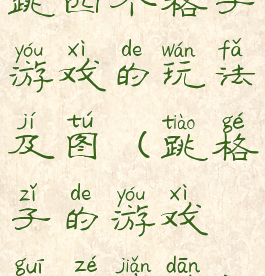 跳四个格子
yóu xì de wán fǎ
游戏的玩法
jí tú tiào gé
及图（跳格
zǐ de yóu xì
子的游戏
guī zé jiǎn dān